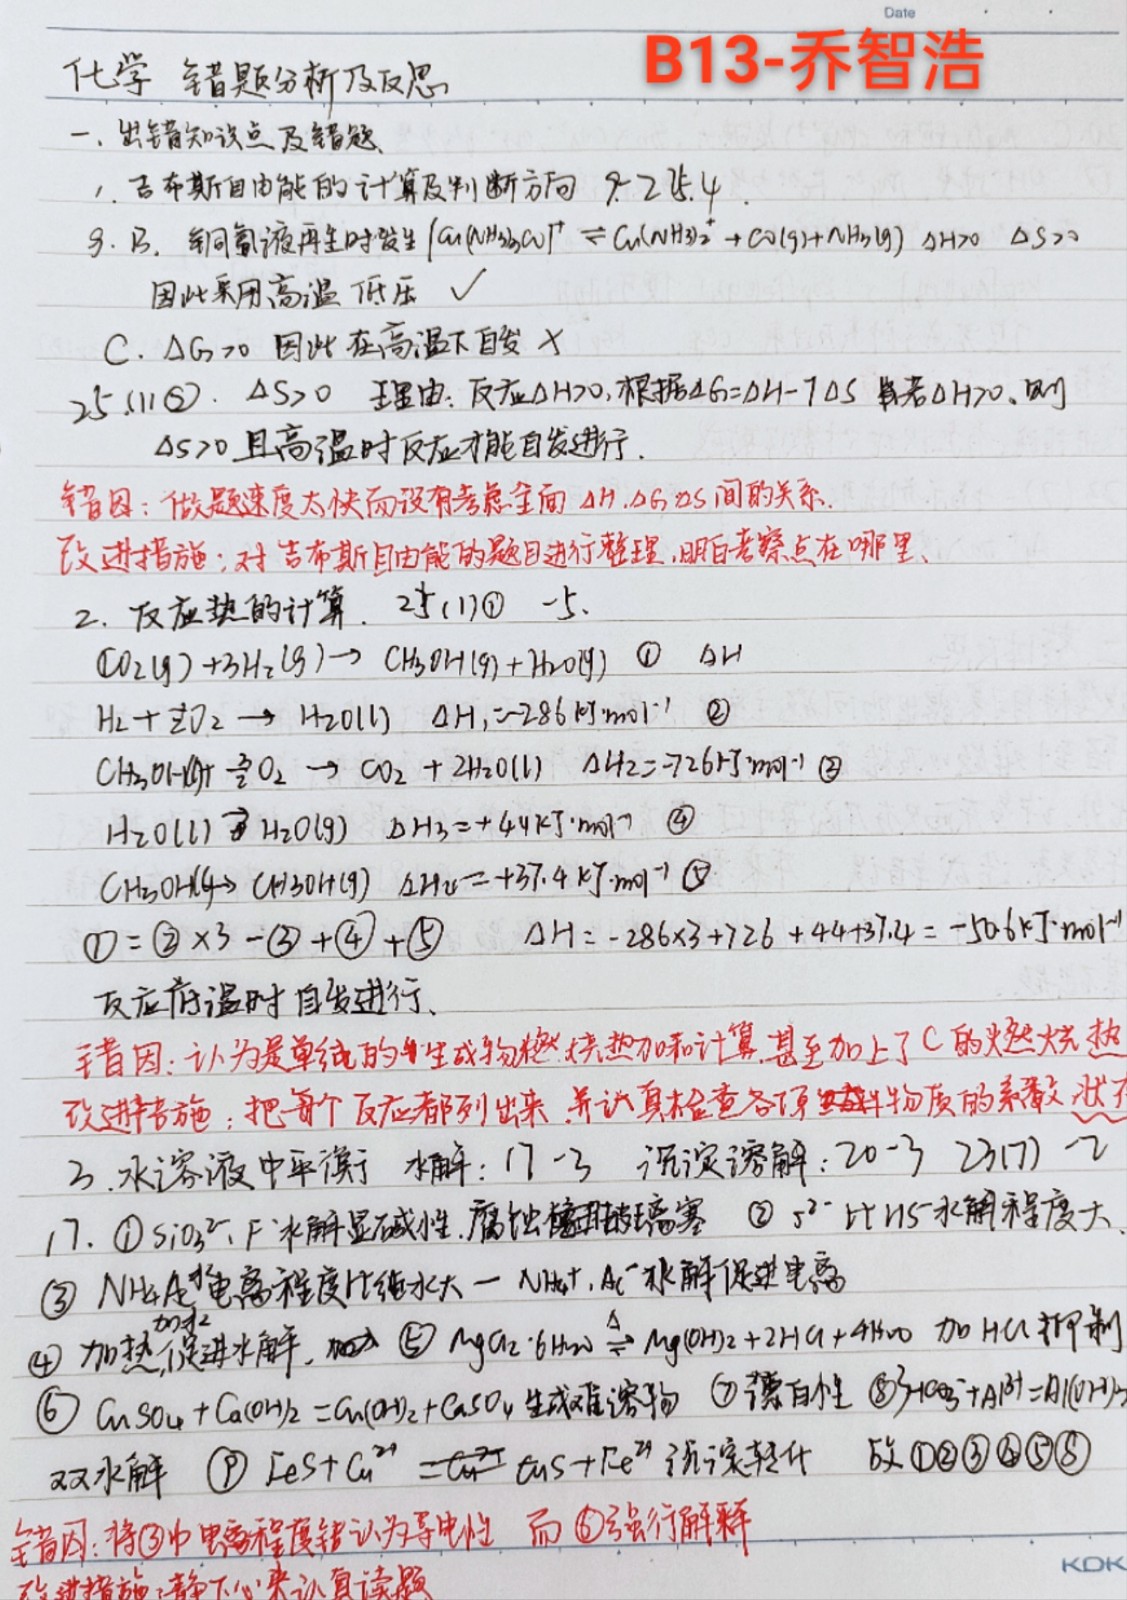 Date
B13-乔智浩
化学 错题分析及反思
一、出错知识点及错题
1. 吉布斯自由能的计算及判断方向 9.-2 25.4.
9. B. 铜氨液再生时发生[Cu(NH3)3CO]+ ⇌ Cu(NH3)2+ + CO(g)+NH3(g) ΔH>0 ΔS>0
因此采用高温低压 ✓
C. ΔG>0 因此在高温下自发 ×
25.(1)②. ΔS>0 理由: 反应ΔH>0,根据ΔG=ΔH-TΔS 若ΔH>0、则
ΔS>0且高温时反应才能自发进行.
错因:做题速度太快而没有考虑全面 ΔH.ΔG.ΔS间的关系.
改进措施:对吉布斯自由能的题目进行整理,明白考察点在哪里、
2. 反应热的计算. 25(1)① -5.
CO2(g)+3H2(g)→ CH3OH(g)+H2O(g) ① ΔH
H2+½O2 → H2O(l) ΔH1=-286kJ·mol-1 ②
CH3OH(l)+ 3/2O2 → CO2+2H2O(l) ΔH2=-726kJ·mol-1 ③
H2O(l)→H2O(g) ΔH3=+44kJ·mol-1 ④
CH3OH(l)→ CH3OH(g) ΔH4=+37.4kJ·mol-1 ⑤
①=②×3-③+④+⑤ ΔH=-286×3+726+44+37.4=-50.6kJ·mol-1
反应低温时自发进行、
错因:认为是单纯的生成物燃烧热加和计算.甚至加上了C的燃烧热
改进措施:把每个反应都列出来.并认真检查各项物质的系数 状
3.水溶液中平衡 水解:17 -3 沉淀溶解:20-3 23(7) -2
17. ①SiO3²-、F-水解显碱性.腐蚀玻璃塞 ②S²-比HS-水解程度大、
③ NH4Ac水电离程度比纯水大— NH4+、Ac-水解促进电离
④ 加热,加水促进水解. ⑤ MgCl2·6H2O ⇌ Mg(OH)2+2HCl+4H2O 加HCl抑制
△
⑥ CuSO4+Ca(OH)2=Cu(OH)2+CaSO4生成难溶物 ⑦漂白性 ⑧3HCO3-+Al3+=Al(OH)3
双水解 ⑨ FeS+Cu2+ = CuS+Fe2+沉淀转化 故①②③④⑤⑧
错因:将③中电离程度错认为导电性 而⑥强行解释
改进措施:静下心来认真读题
KDK